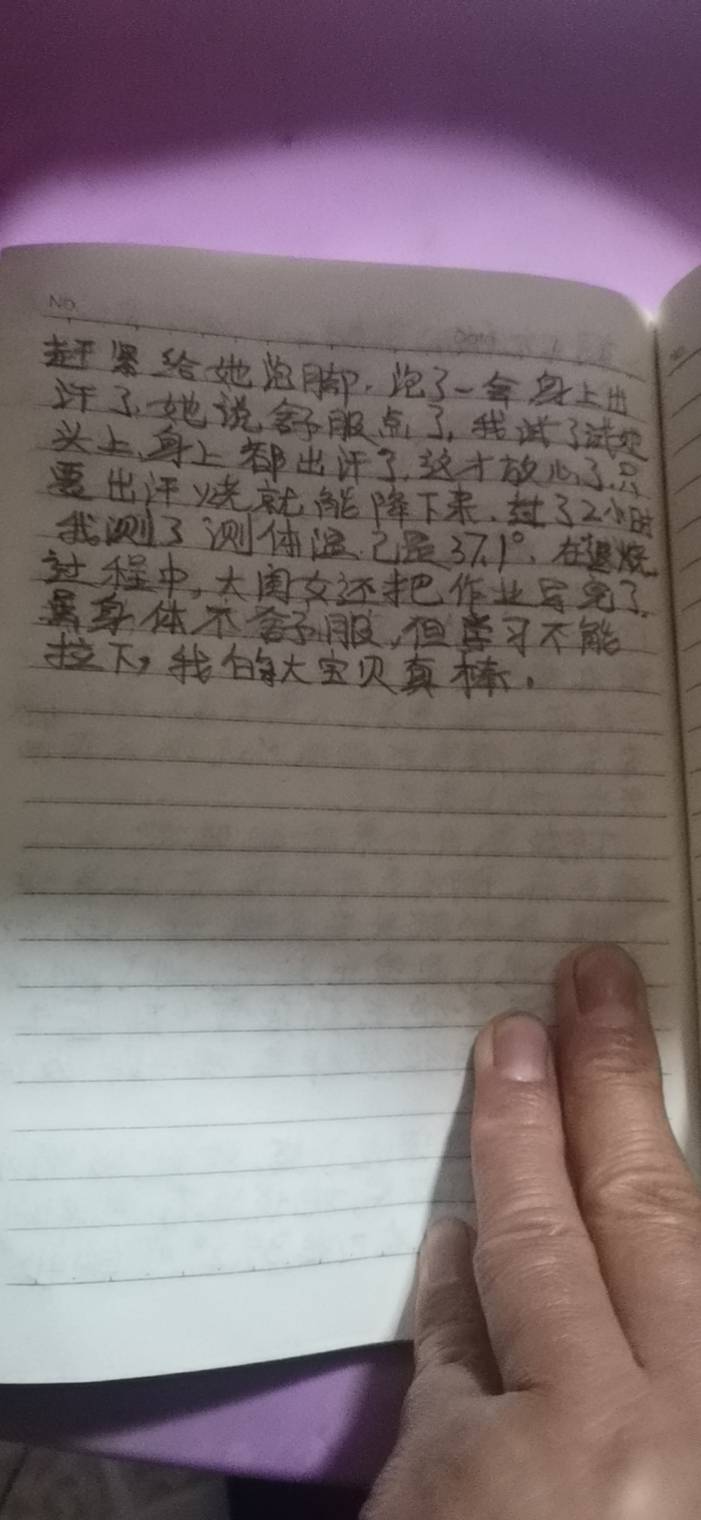 No
赶紧给她泡脚.泡了一会身上出
汗了.她说舒服点了,我试了试她
头上,身上都出汗了,这才放心了.只
要出汗烧就能降下来.过了2小时
我测了测体温已是37.1°.在退烧
过程中,大闺女还把作业写完了.
虽身体不舒服,但学习不能
拉下,我的大宝贝真棒.